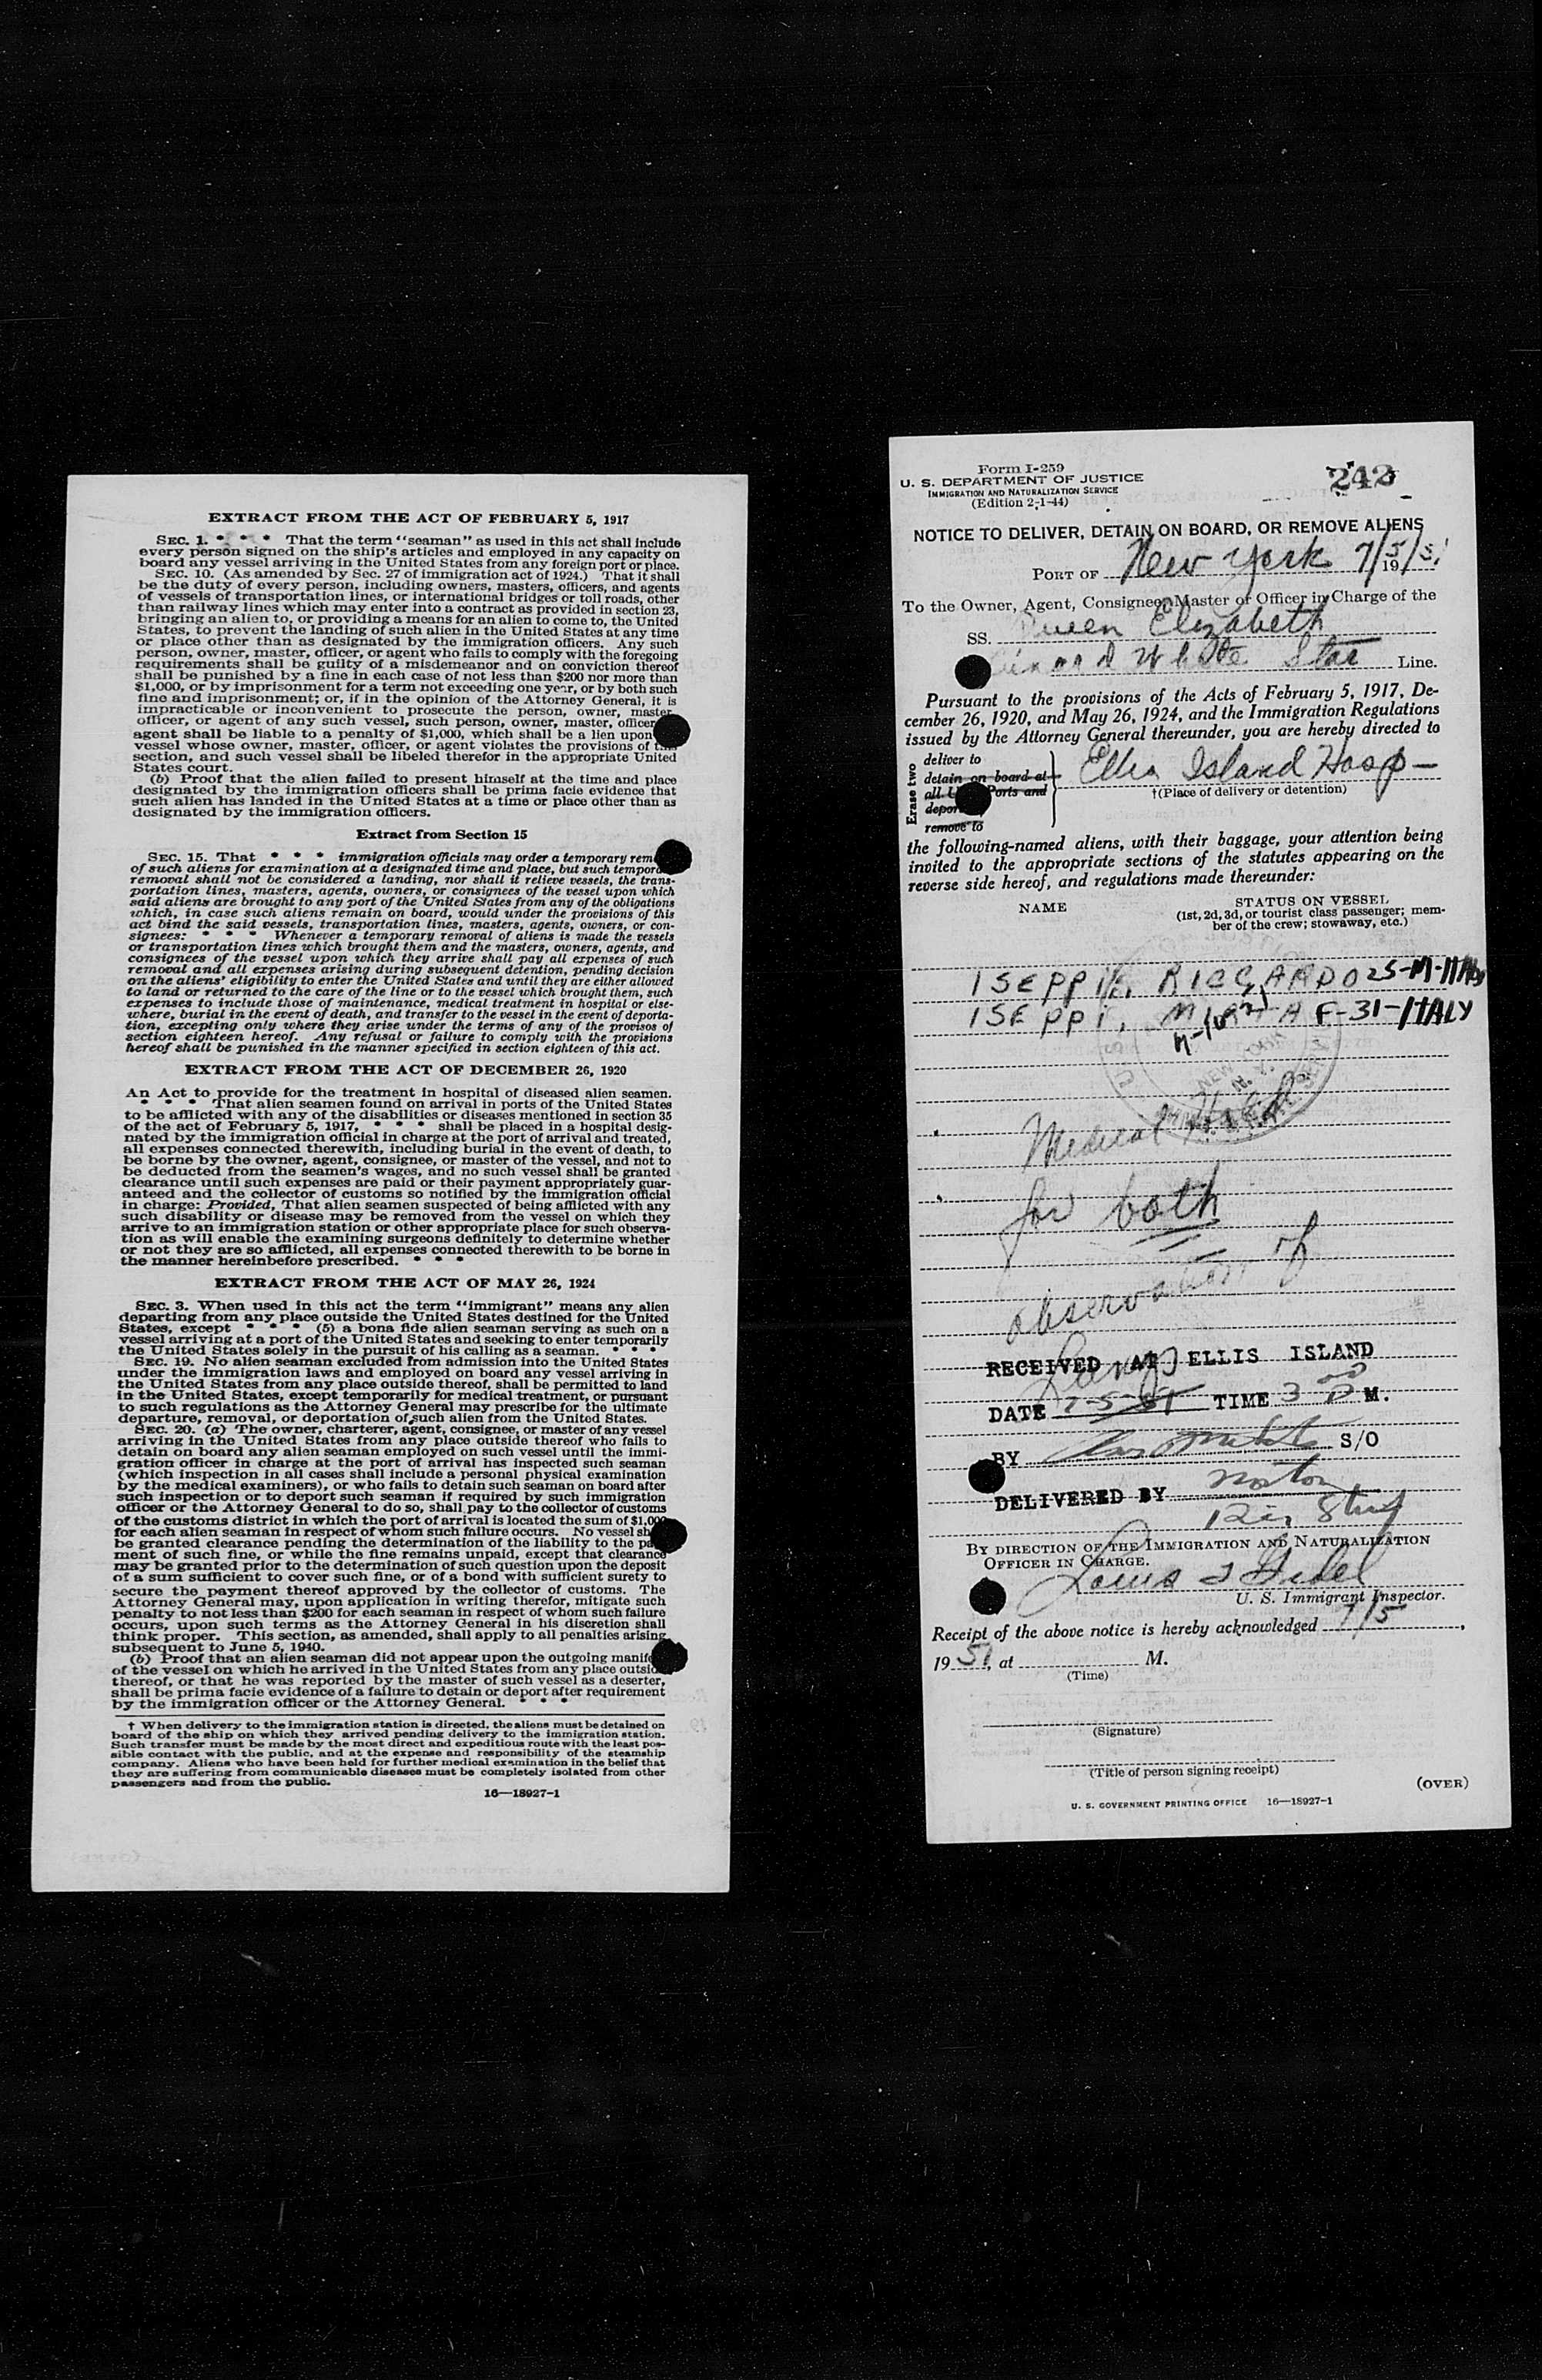 EXTRACT FROM THE ACT OF FEBRUARY 5, 1917
SEC. 1. * * * That the term "seaman" as used in this act shall include
every person signed on the ship's articles and employed in any capacity on
board any vessel arriving in the United States from any foreign port or place.
SEC. 10. (As amended by Sec. 27 of immigration act of 1924.) That it shall
be the duty of every person, including owners, masters, officers, and agents
of vessels of transportation lines, or international bridges or toll roads, other
than railway lines which may enter into a contract as provided in section 23,
bringing an alien to, or providing a means for an alien to come to, the United
States, to prevent the landing of such alien in the United States at any time
or place other than as designated by the immigration officers. Any such
person, owner, master, officer, or agent who fails to comply with the foregoing
requirements shall be guilty of a misdemeanor and on conviction thereof
shall be punished by a fine in each case of not less than $200 nor more than
$1,000, or by imprisonment for a term not exceeding one year, or by both such
fine and imprisonment; or, if in the opinion of the Attorney General, it is
impracticable or inconvenient to prosecute the person, owner, master,
officer, or agent of any such vessel, such person, owner, master, officer
agent shall be liable to a penalty of $1,000, which shall be a lien upon
vessel whose owner, master, officer, or agent violates the provisions of this
section, and such vessel shall be libeled therefor in the appropriate United
States court.
(b) Proof that the alien failed to present himself at the time and place
designated by the immigration officers shall be prima facie evidence that
such alien has landed in the United States at a time or place other than as
designated by the immigration officers.
Extract from Section 15
SEC. 15. That * * * immigration officials may order a temporary rem
of such aliens for examination at a designated time and place, but such tempora
removal shall not be considered a landing, nor shall it relieve vessels, the trans-
portation lines, masters, agents, owners, or consignees of the vessel upon which
said aliens are brought to any port of the United States from any of the obligations
which, in case such aliens remain on board, would under the provisions of this
act bind the said vessels, transportation lines, masters, agents, owners, or con-
signees: * * * Whenever a temporary removal of aliens is made the vessels
or transportation lines which brought them and the masters, owners, agents, and
consignees of the vessel upon which they arrive shall pay all expenses of such
removal and all expenses arising during subsequent detention, pending decision
on the aliens' eligibility to enter the United States and until they are either allowed
to land or returned to the care of the line or to the vessel which brought them, such
expenses to include those of maintenance, medical treatment in hospital or else-
where, burial in the event of death, and transfer to the vessel in the event of deporta-
tion, excepting only where they arise under the terms of any of the provisos of
section eighteen hereof. Any refusal or failure to comply with the provisions
hereof shall be punished in the manner specified in section eighteen of this act.
EXTRACT FROM THE ACT OF DECEMBER 26, 1920
An Act to provide for the treatment in hospital of diseased alien seamen.
* * * That alien seamen found on arrival in ports of the United States
to be afflicted with any of the disabilities or diseases mentioned in section 35
of the act of February 5, 1917, * * * shall be placed in a hospital desig-
nated by the immigration official in charge at the port of arrival and treated,
all expenses connected therewith, including burial in the event of death, to
be borne by the owner, agent, consignee, or master of the vessel, and not to
be deducted from the seamen's wages, and no such vessel shall be granted
clearance until such expenses are paid or their payment appropriately guar-
anteed and the collector of customs so notified by the immigration official
in charge: Provided, That alien seamen suspected of being afflicted with any
such disability or disease may be removed from the vessel on which they
arrive to an immigration station or other appropriate place for such observa-
tion as will enable the examining surgeons definitely to determine whether
or not they are so afflicted, all expenses connected therewith to be borne in
the manner hereinbefore prescribed. * * *
EXTRACT FROM THE ACT OF MAY 26, 1924
SEC. 3. When used in this act the term "immigrant" means any alien
departing from any place outside the United States destined for the United
States, except * * * (5) a bona fide alien seaman serving as such on a
vessel arriving at a port of the United States and seeking to enter temporarily
the United States solely in the pursuit of his calling as a seaman. * * *
SEC. 19. No alien seaman excluded from admission into the United States
under the immigration laws and employed on board any vessel arriving in
the United States from any place outside thereof, shall be permitted to land
in the United States, except temporarily for medical treatment, or pursuant
to such regulations as the Attorney General may prescribe for the ultimate
departure, removal, or deportation of such alien from the United States.
SEC. 20. (a) The owner, charterer, agent, consignee, or master of any vessel
arriving in the United States from any place outside thereof who fails to
detain on board any alien seaman employed on such vessel until the immi-
gration officer in charge at the port of arrival has inspected such seaman
(which inspection in all cases shall include a personal physical examination
by the medical examiners), or who fails to detain such seaman on board after
such inspection or to deport such seaman if required by such immigration
officer or the Attorney General to do so, shall pay to the collector of customs
of the customs district in which the port of arrival is located the sum of $1,000
for each alien seaman in respect of whom such failure occurs. No vessel sh
be granted clearance pending the determination of the liability to the pa
ment of such fine, or while the fine remains unpaid, except that clearance
may be granted prior to the determination of such question upon the deposit
of a sum sufficient to cover such fine, or of a bond with sufficient surety to
secure the payment thereof approved by the collector of customs. The
Attorney General may, upon application in writing therefor, mitigate such
penalty to not less than $200 for each seaman in respect of whom such failure
occurs, upon such terms as the Attorney General in his discretion shall
think proper. This section, as amended, shall apply to all penalties arising
subsequent to June 5, 1940.
(b) Proof that an alien seaman did not appear upon the outgoing manife
of the vessel on which he arrived in the United States from any place outsid
thereof, or that he was reported by the master of such vessel as a deserter,
shall be prima facie evidence of a failure to detain or deport after requirement
by the immigration officer or the Attorney General. * * *
† When delivery to the immigration station is directed, the aliens must be detained on
board of the ship on which they arrived pending delivery to the immigration station.
Such transfer must be made by the most direct and expeditious route with the least pos-
sible contact with the public, and at the expense and responsibility of the steamship
company. Aliens who have been held for further medical examination in the belief that
they are suffering from communicable diseases must be completely isolated from other
passengers and from the public.
16—18927-1
Form I-259
U. S. DEPARTMENT OF JUSTICE
IMMIGRATION AND NATURALIZATION SERVICE
(Edition 2-1-44)
242
NOTICE TO DELIVER, DETAIN ON BOARD, OR REMOVE ALIENS
PORT OF New York 7/5/51 19
To the Owner, Agent, Consignee, Master or Officer in Charge of the
SS. Queen Elizabeth
Cunard White Star Line.
Pursuant to the provisions of the Acts of February 5, 1917, De-
cember 26, 1920, and May 26, 1924, and the Immigration Regulations
issued by the Attorney General thereunder, you are hereby directed to
Erase two
deliver to
detain on board at
all U. Ports and
depor
remove to
Ellis Island Hosp—
†(Place of delivery or detention)
the following-named aliens, with their baggage, your attention being
invited to the appropriate sections of the statutes appearing on the
reverse side hereof, and regulations made thereunder:
NAME
STATUS ON VESSEL
(1st, 2d, 3d, or tourist class passenger; mem-
ber of the crew; stowaway, etc.)
ISEPPI, RICCARDO 25-M-ITALY
ISEPPI, F-31-ITALY
Medical Hold
for both
observation of
Lungs
RECEIVED AT ELLIS ISLAND
DATE 7-5-51 TIME 3 00 P M.
BY S/O
DELIVERED BY Norton
BY DIRECTION OF THE IMMIGRATION AND NATURALIZATION
OFFICER IN CHARGE.
Louis
U. S. Immigrant Inspector.
Receipt of the above notice is hereby acknowledged 7/5,
19 51, at M.
(Time)
(Signature)
(Title of person signing receipt)
(OVER)
U. S. GOVERNMENT PRINTING OFFICE 16—18927-1